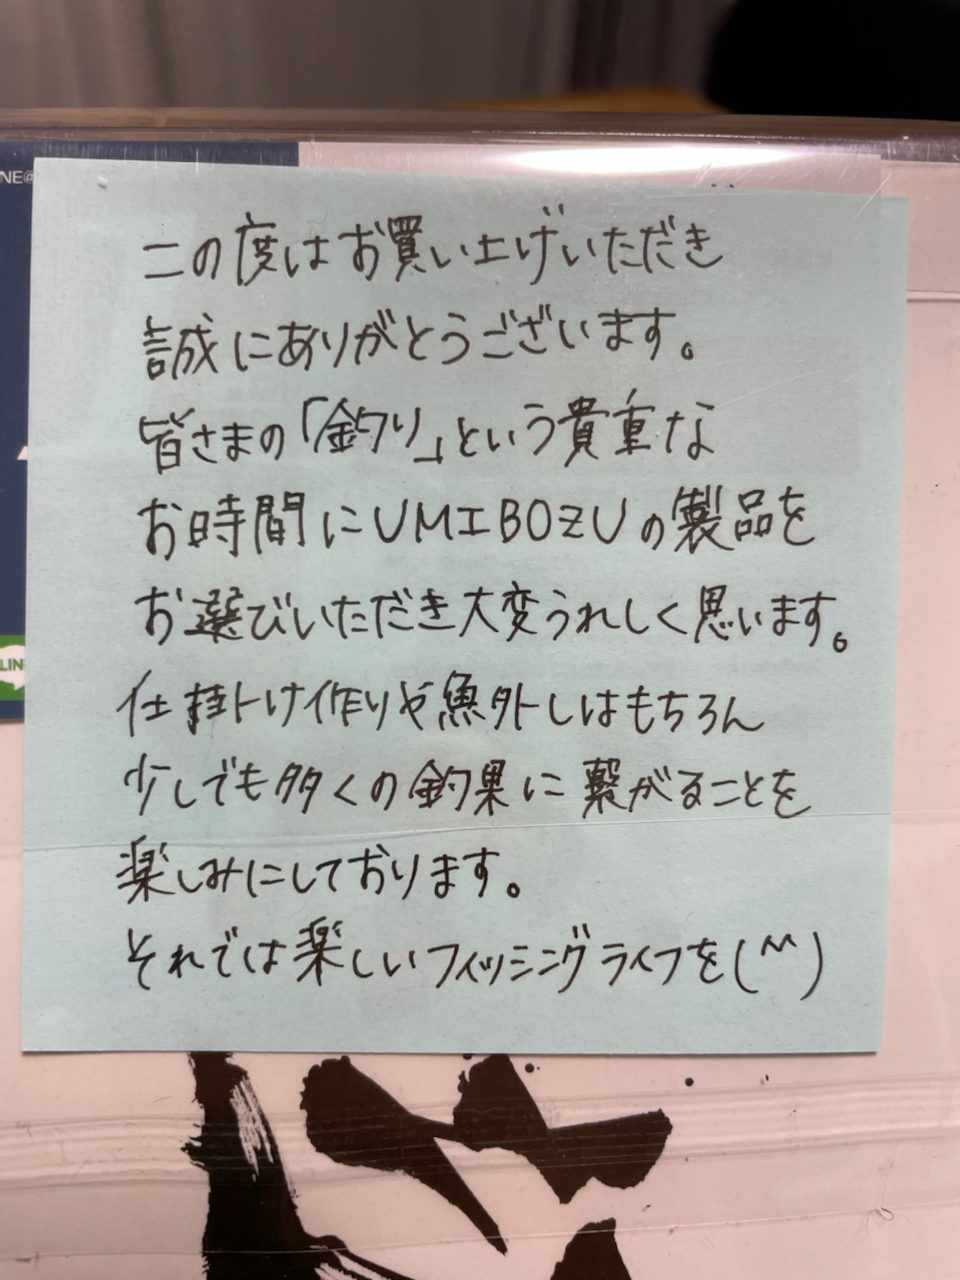 NE@
この度はお買い上げいただき
誠にありがとうございます。
皆さまの「釣り」という貴重な
お時間にUMIBOZUの製品を
お選びいただき大変うれしく思います。
LIN
仕掛け作りや魚外しはもちろん
少しでも多くの釣果に繋がることを
楽しみにしております。
それでは楽しいフィッシングライフを(^^)